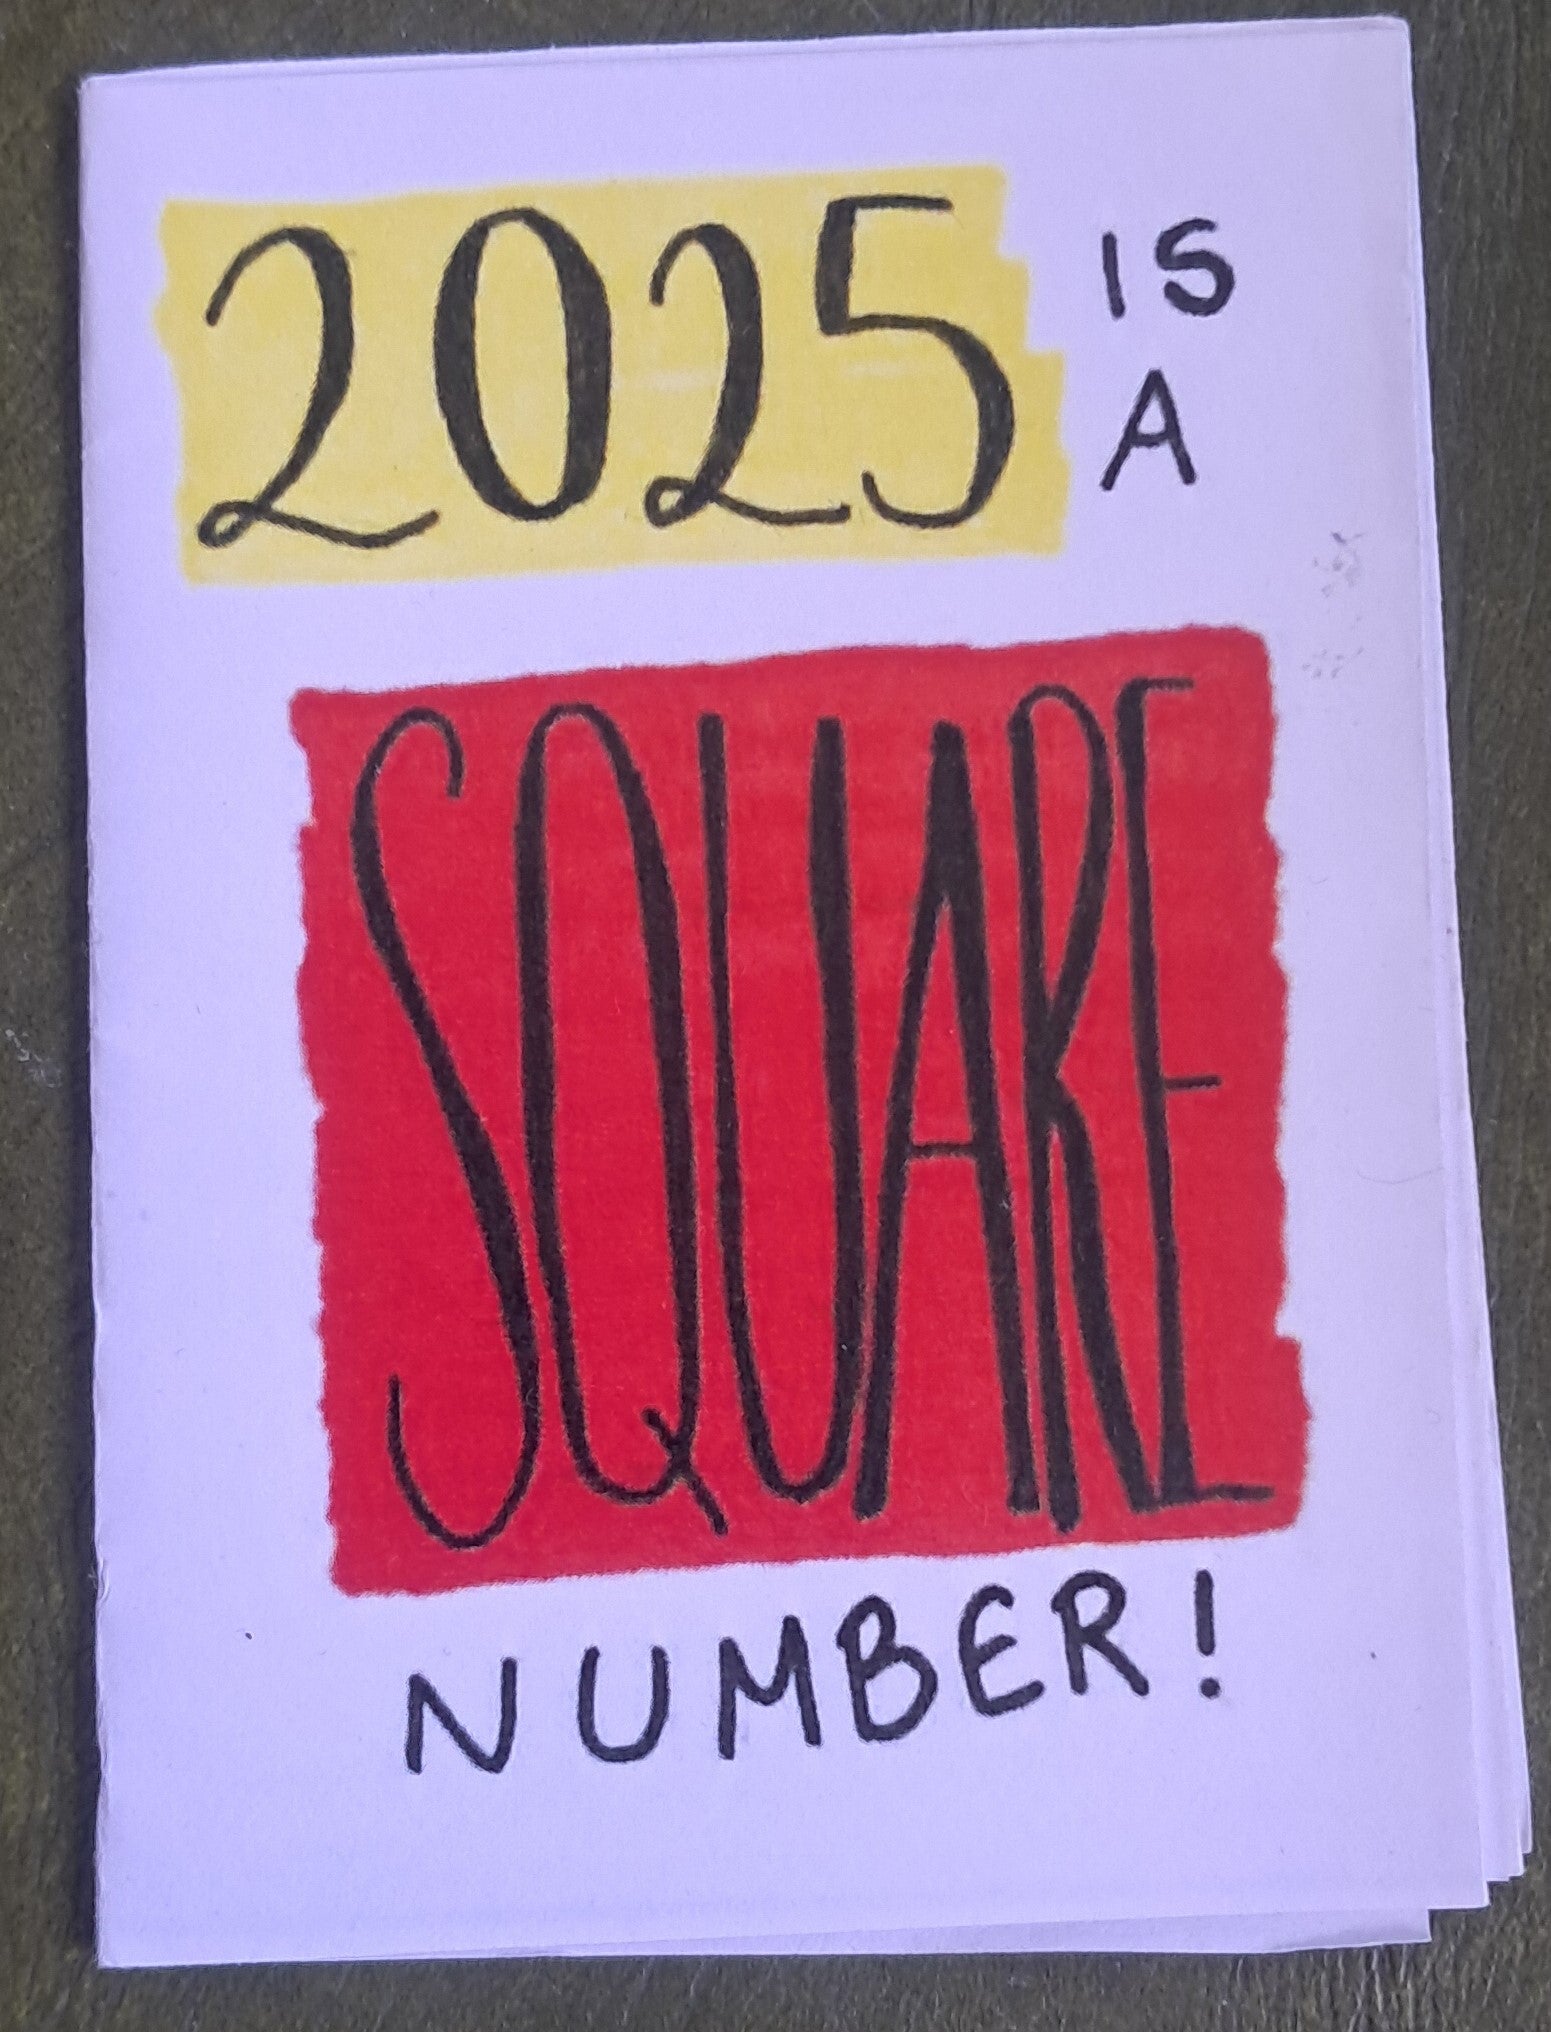 2025 IS
A
SQUARE
NUMBER!